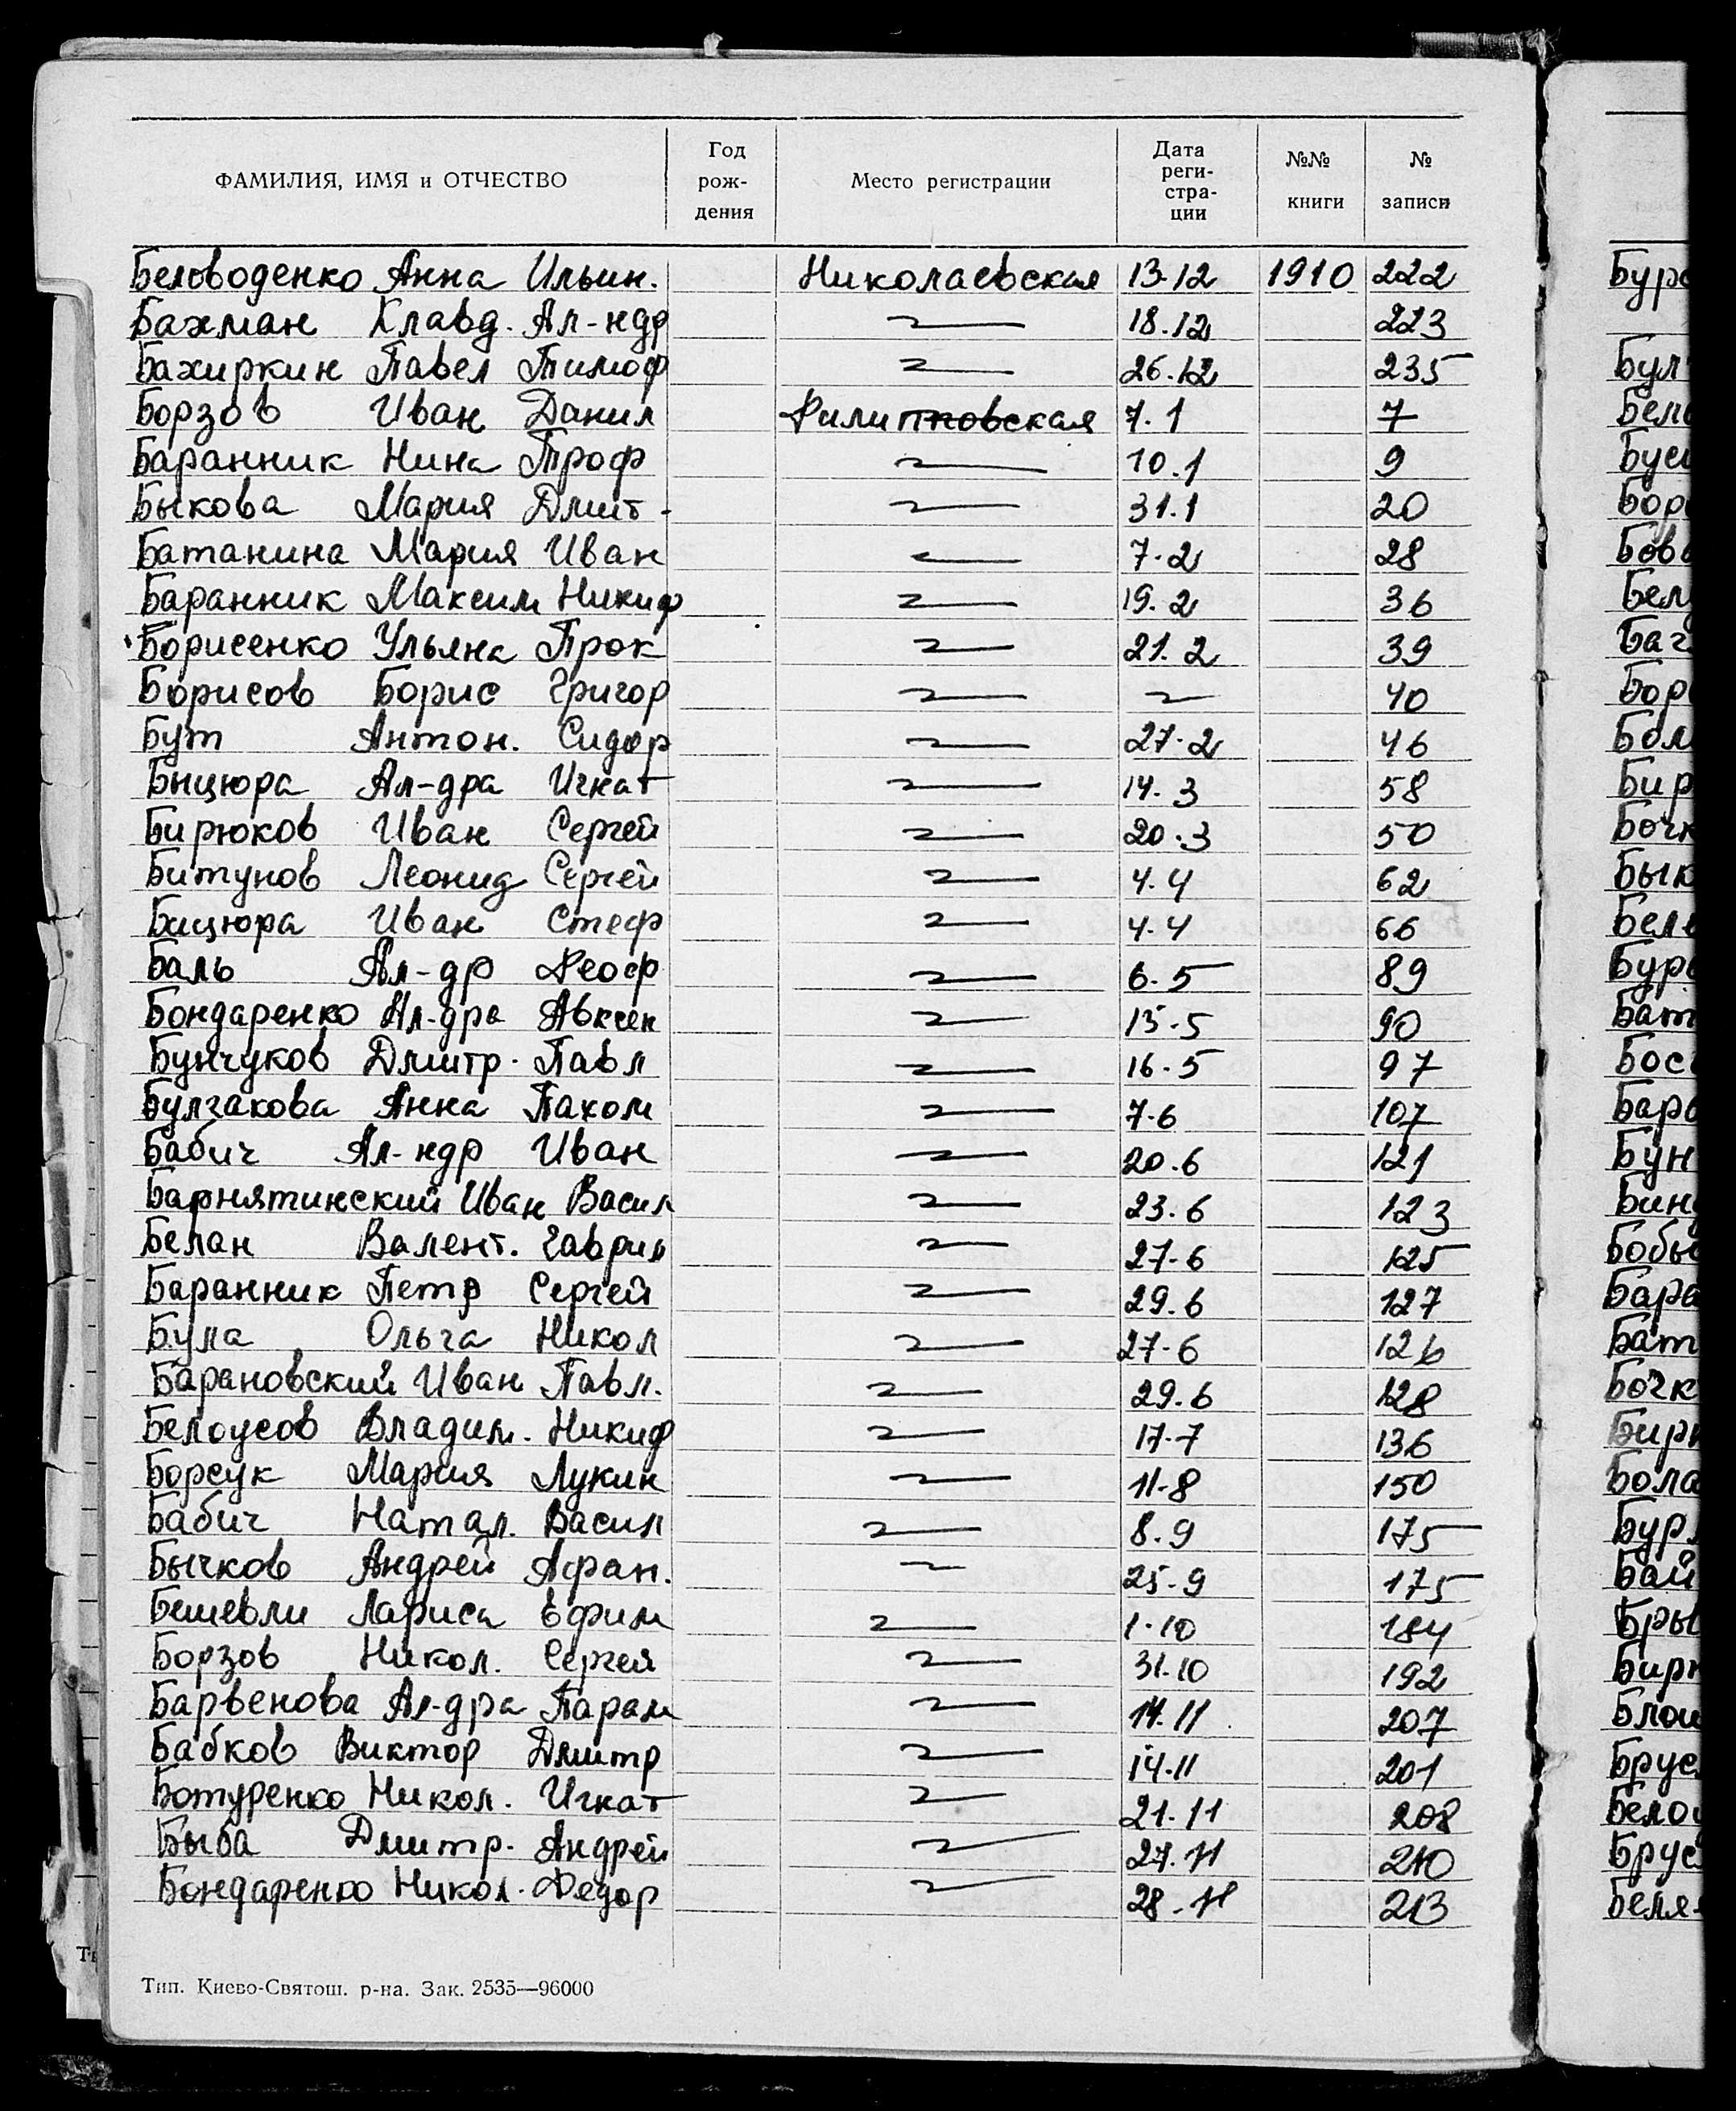 ФАМИЛИЯ, ИМЯ и ОТЧЕСТВО Год рож- дения Место регистрации Дата реги- стра- ции №№ книги № записи
Беловоденко Анна Ильин. Николаевская 13.12 1910 222
Бахман Клавд. Ал-ндр 18.12 223
Бахиркин Павел Тимоф 26.12 235
Борзов Иван Данил Филипповская 7.1 7
Баранник Нина Троф 10.1 9
Быкова Мария Дмит- 31.1 20
Батанина Мария Иван 7.2 28
Баранник Максим Никиф 19.2 36
Борисенко Ульяна Прок 21.2 39
Борисов Борис Григор 40
Бут Антон. Сидор 27.2 46
Быцюра Ал-дра Игнат 14.3 58
Бирюков Иван Сергей 20.3 50
Битунов Леонид Сергей 4.4 62
Бицюра Иван Стеф 4.4 66
Баль Ал-др Феоф 6.5 89
Бондаренко Ал-дра Авксен 15.5 90
Бунчуков Дмитр. Павл 16.5 97
Булгакова Анна Пахом 7-6 107
Бабич Ал-ндр Иван 20.6 121
Барнятинский Иван Васил 23.6 123
Белан Валент. Гаврил 27-6 125
Баранник Петр Сергей 29.6 127
Була Ольга Никол 27-6 126
Барановский Иван Павл. 29.6 128
Белоусов Владим. Никиф 17-7 136
Борсук Мария Лукин 11-8 150
Бабич Натал. Васил 8.9 175
Бычков Андрей Афан. 25-9 175
Бешевли Лариса Ефим 1.10 184
Борзов Никол. Сергея 31.10 192
Барвенова Ал-дра Парам 14.11 207
Бабков Виктор Дмитр 14-11 201
Ботуренко Никол. Игнат 21.11 208
Быба Дмитр. Андрей 27.11 210
Бондаренко Никол. Федор 28-11 213
Тип. Киево-Святош. р-на. Зак. 2535—96000